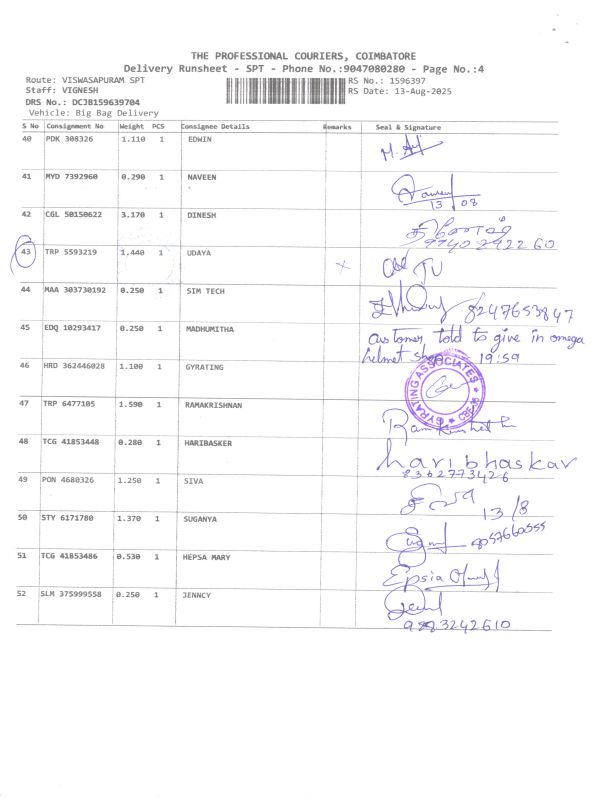 THE PROFESSIONAL COURIERS, COIMBATORE
Delivery Runsheet - SPT - Phone No.:9047080280 - Page No.:4
Route: VISWASAPURAM SPT RS No.: 1596397
Staff: VIGNESH RS Date: 13-Aug-2025
DRS No.: DCJB159639704
Vehicle: Big Bag Delivery
S No Consignment No Weight PCS Consignee Details Remarks Seal & Signature
40 PDK 308326 1.110 1 EDWIN
41 MYD 7392960 0.290 1 NAVEEN
13 08
42 CGL 50150622 3.170 1 DINESH
43 TRP 5593219 1.440 1 UDAYA
44 MAA 303730192 0.250 1 SIM TECH 8247653847
45 EDQ 10293417 0.250 1 MADHUMITHA customer told to give in omega
helmet shop 19:59
46 HRD 362446028 1.100 1 GYRATING GYRATING ASSOCIATES
47 TRP 6477105 1.590 1 RAMAKRISHNAN
48 TCG 41853448 0.280 1 HARIBASKER haribhaskar
8362773426
49 PON 4680326 1.250 1 SIVA
13/8
50 STY 6171780 1.370 1 SUGANYA
51 TCG 41853486 0.530 1 HEPSA MARY Epsia
52 SLM 375999558 0.250 1 JENNCY